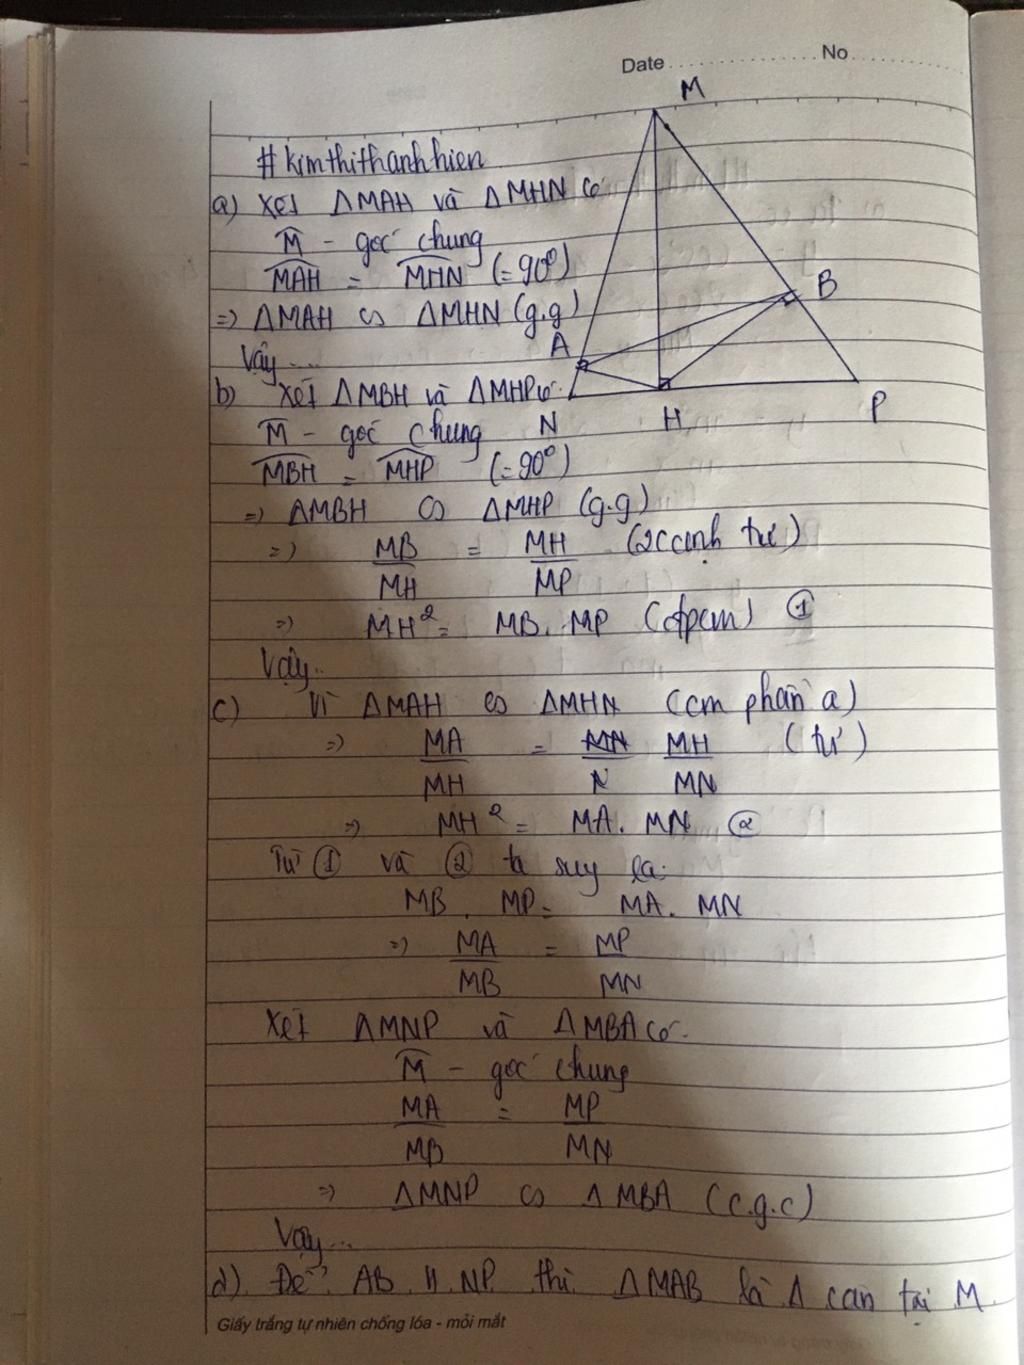 Date ................ No ................
M
#kimthithanhhien
a) Xét ΔMAH và ΔMHN có
M̂ - góc chung
MAH = MHN (=90°)
B
=> ΔMAH ∽ ΔMHN (g.g)
A
Vậy ...
b) Xét ΔMBH và ΔMHP có.
N H P
M̂ - góc chung
MBH = MHP (=90°)
=> ΔMBH ∽ ΔMHP (g.g)
=> MB/MH = MH/MP (2 cạnh tư)
=> MH² = MB. MP (đpcm) ①
Vậy..
c) Vì ΔMAH ∽ ΔMHN (cm phần a)
=> MA/MH = MH/MN (tư)
=> MH² = MA. MN ②
Từ ① và ② ta suy ra:
MB. MP = MA. MN
=> MA/MB = MP/MN
Xét ΔMNP và ΔMBA có.
M̂ - góc chung
MA/MB = MP/MN
=> ΔMNP ∽ ΔMBA (c.g.c)
Vậy...
d). Để AB // NP thì ΔMAB là Δ cân tại M
Giấy trắng tự nhiên chống lóa - mỏi mắt